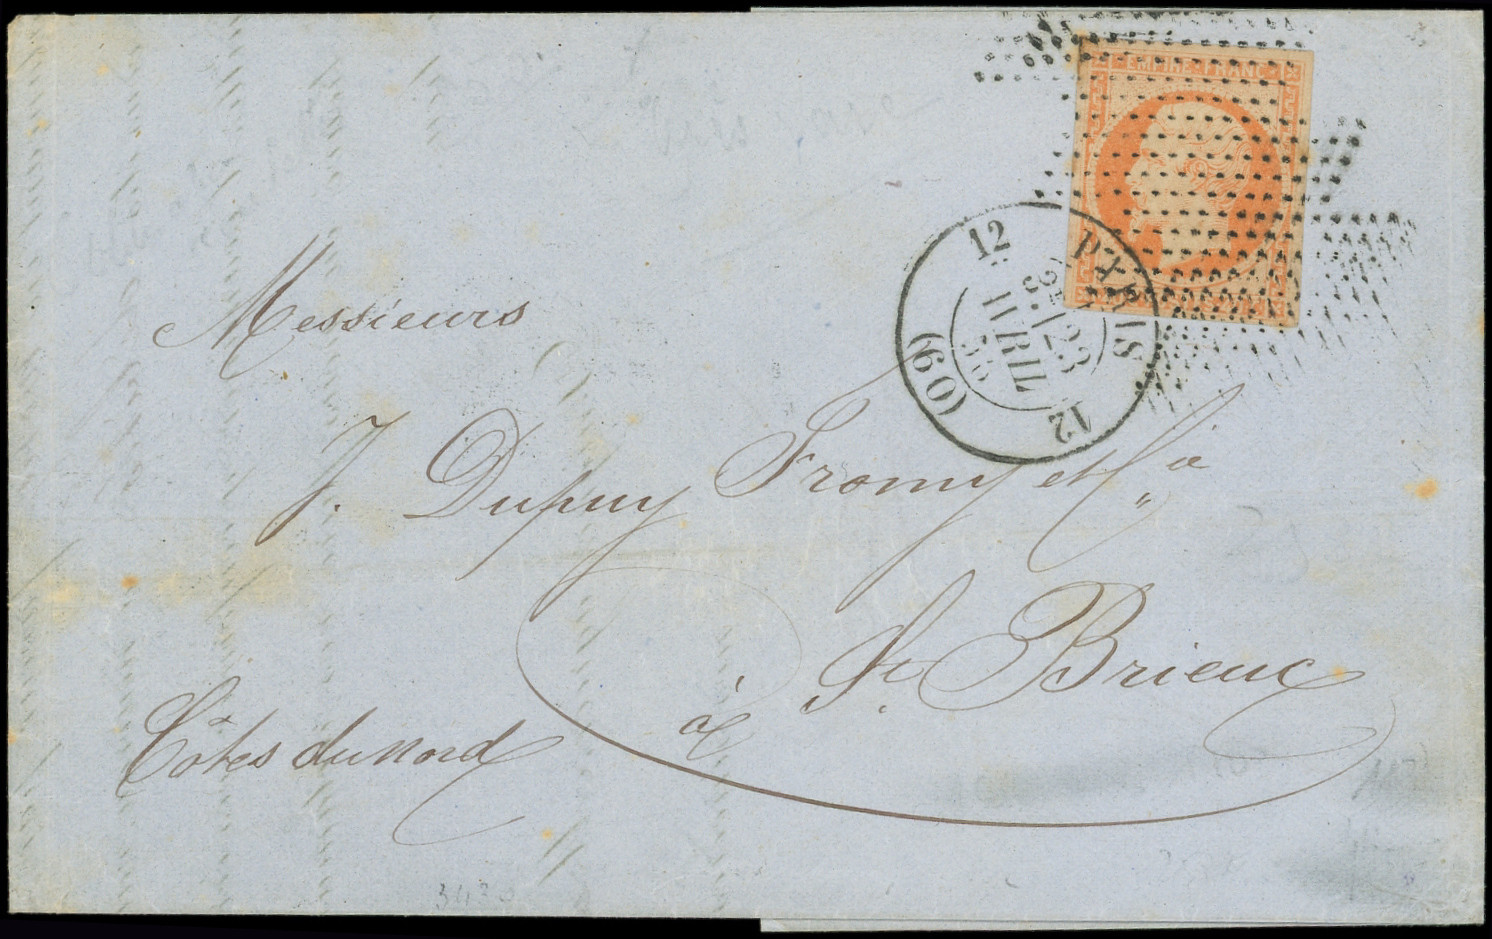 EMPIRE FRANC
12 PARIS 12
3E
23
AVRIL
56
(60)
Messieurs
J. Dupuy Fromy et Cie
à St. Brieuc
Côtes du Nord